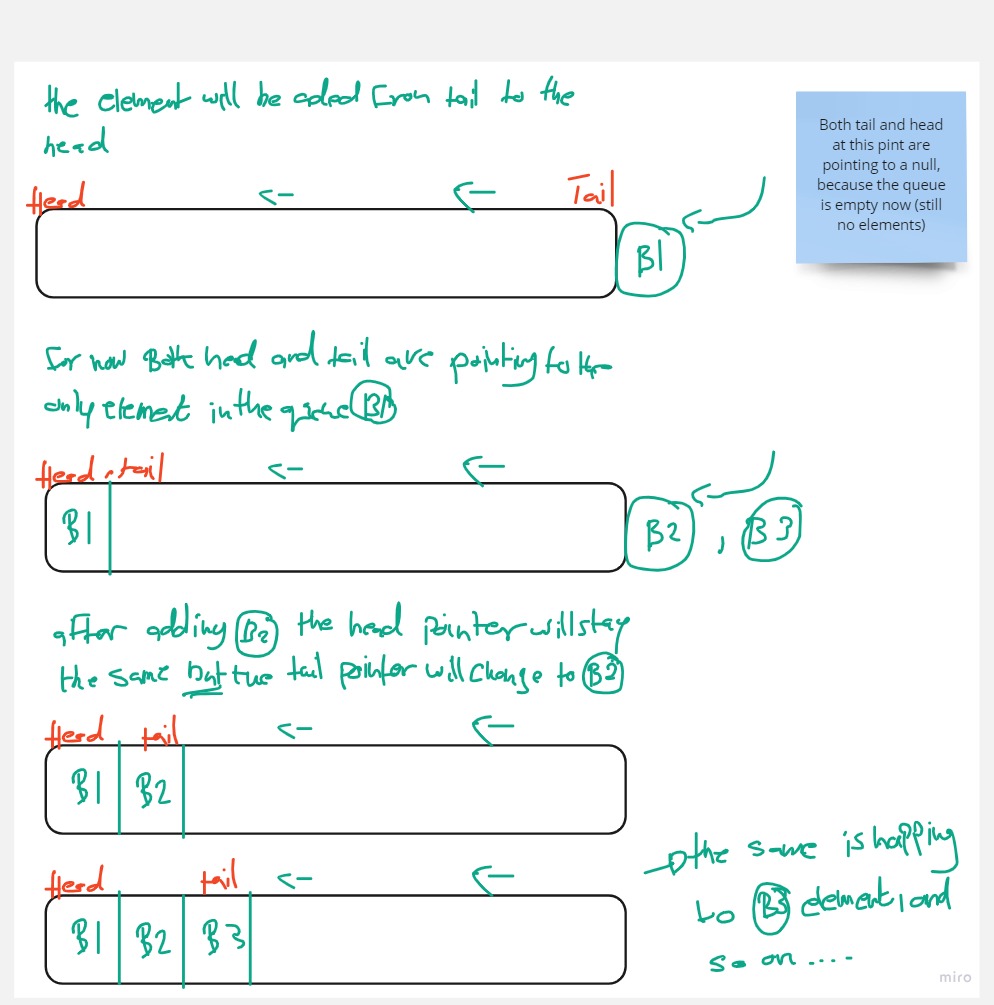 the element will be added From tail to the
head
Both tail and head
at this pint are
pointing to a null,
because the queue
is empty now (still
no elements)
Head Tail
B1
For now Both head and tail are pointing to the
only element in the queue B1
Head, tail
B1
B2 , B3
after adding B2 the head pointer will stay
the same but the tail pointer will change to B2
Head tail
B1 B2
Head tail
B1 B2 B3
the same is happing
to B3 element, and
so on ....
miro